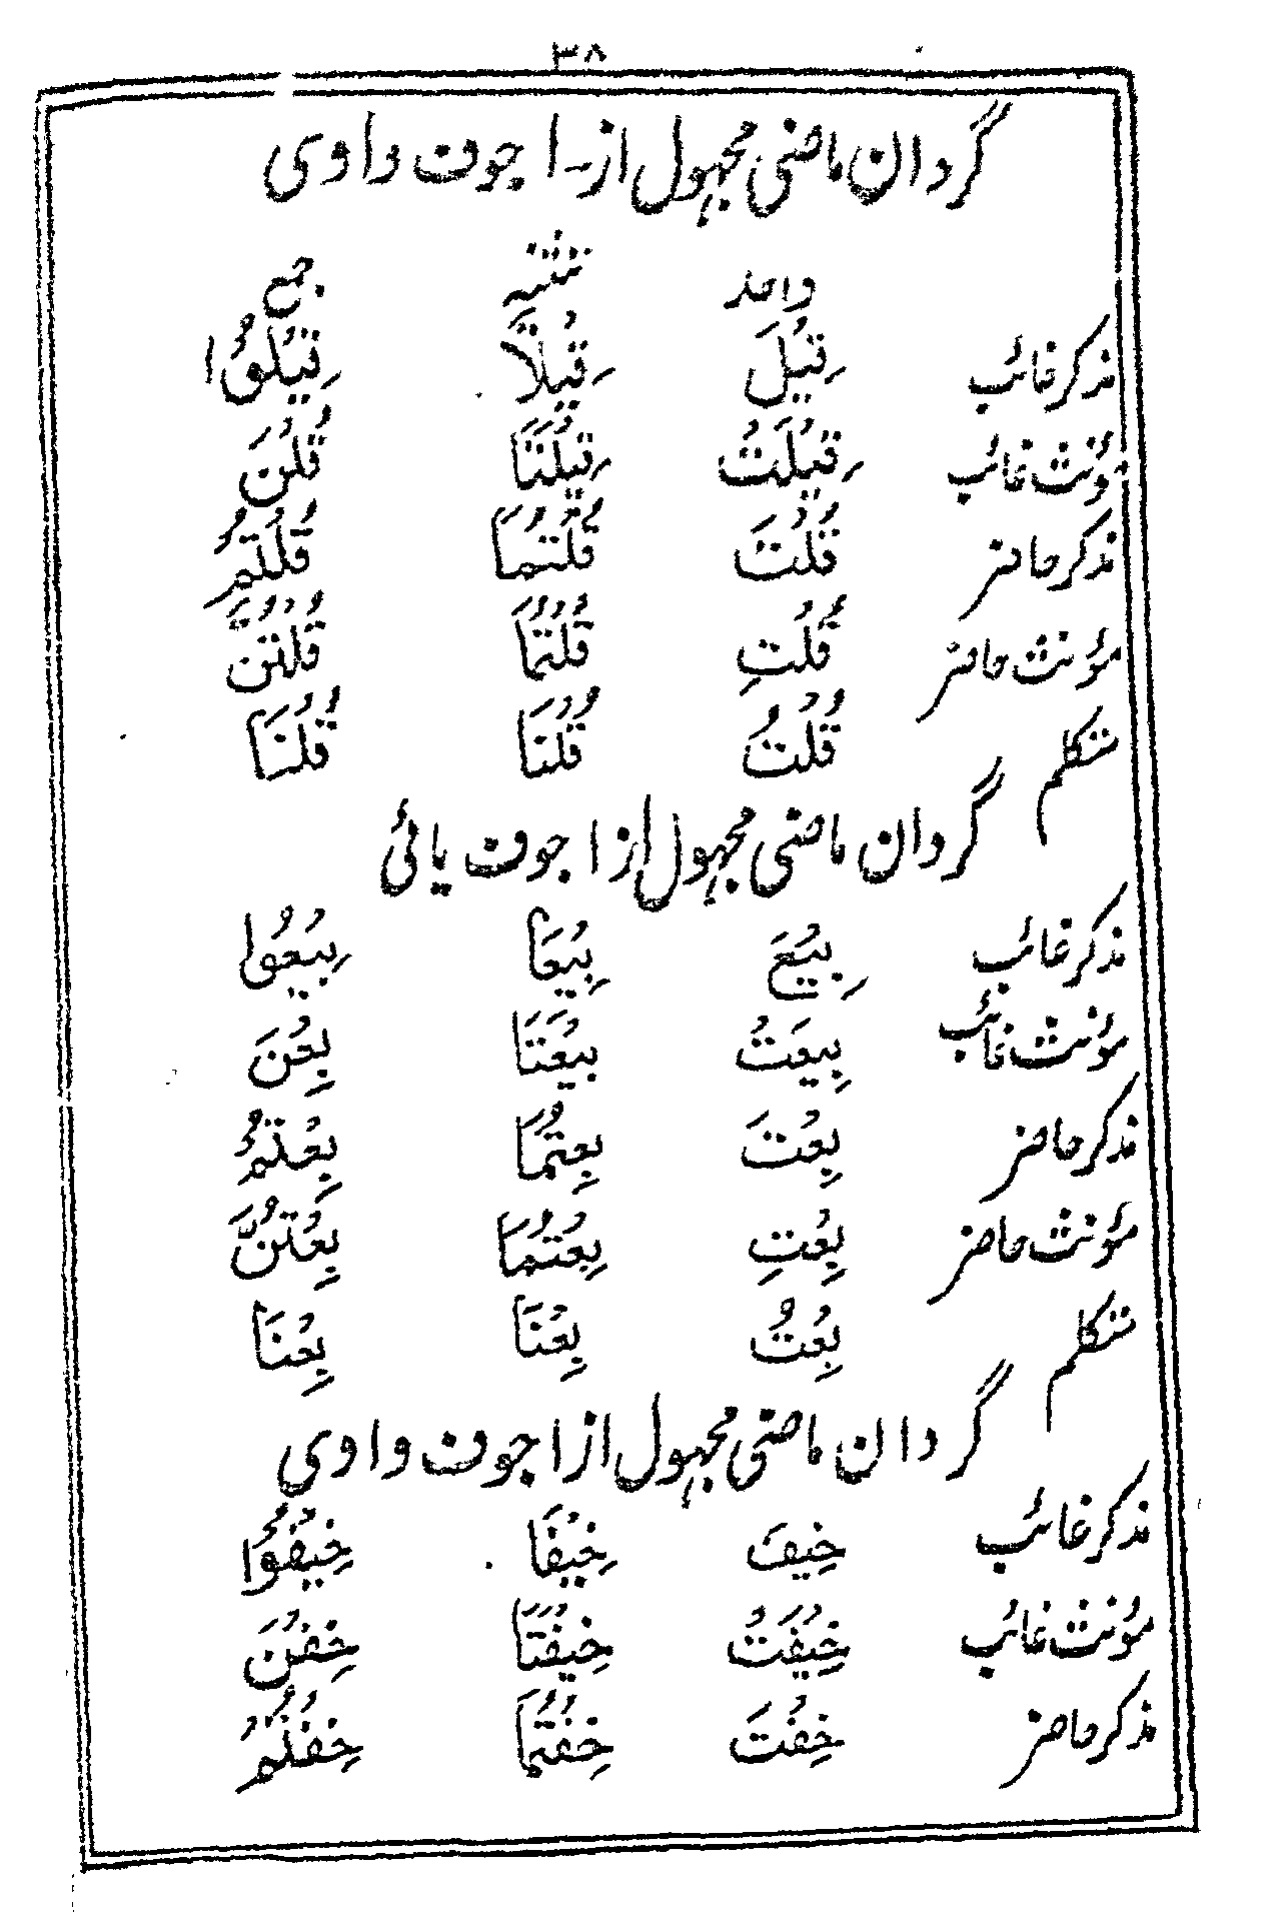 ۳۸
گردان ماضی مجہول از اجوف واوی
واحد تثنیہ جمع
مذکر غائب قِيْلَ قِيْلَا قِيْلُوْا
مؤنث غائب قِيْلَتْ قِيْلَتَا قُلْنَ
مذکر حاضر قُلْتَ قُلْتُمَا قُلْتُمْ
مؤنث حاضر قُلْتِ قُلْتُمَا قُلْتُنَّ
متکلم قُلْتُ قُلْنَا قُلْنَا
گردان ماضی مجہول از اجوف یائی
مذکر غائب بِيْعَ بِيْعَا بِيْعُوْا
مؤنث غائب بِيْعَتْ بِيْعَتَا بِعْنَ
مذکر حاضر بِعْتَ بِعْتُمَا بِعْتُمْ
مؤنث حاضر بِعْتِ بِعْتُمَا بِعْتُنَّ
متکلم بِعْتُ بِعْنَا بِعْنَا
گردان ماضی مجہول از اجوف واوی
مذکر غائب خِيْفَ خِيْفَا خِيْفُوْا
مؤنث غائب خِيْفَتْ خِيْفَتَا خِفْنَ
مذکر حاضر خِفْتَ خِفْتُمَا خِفْتُمْ